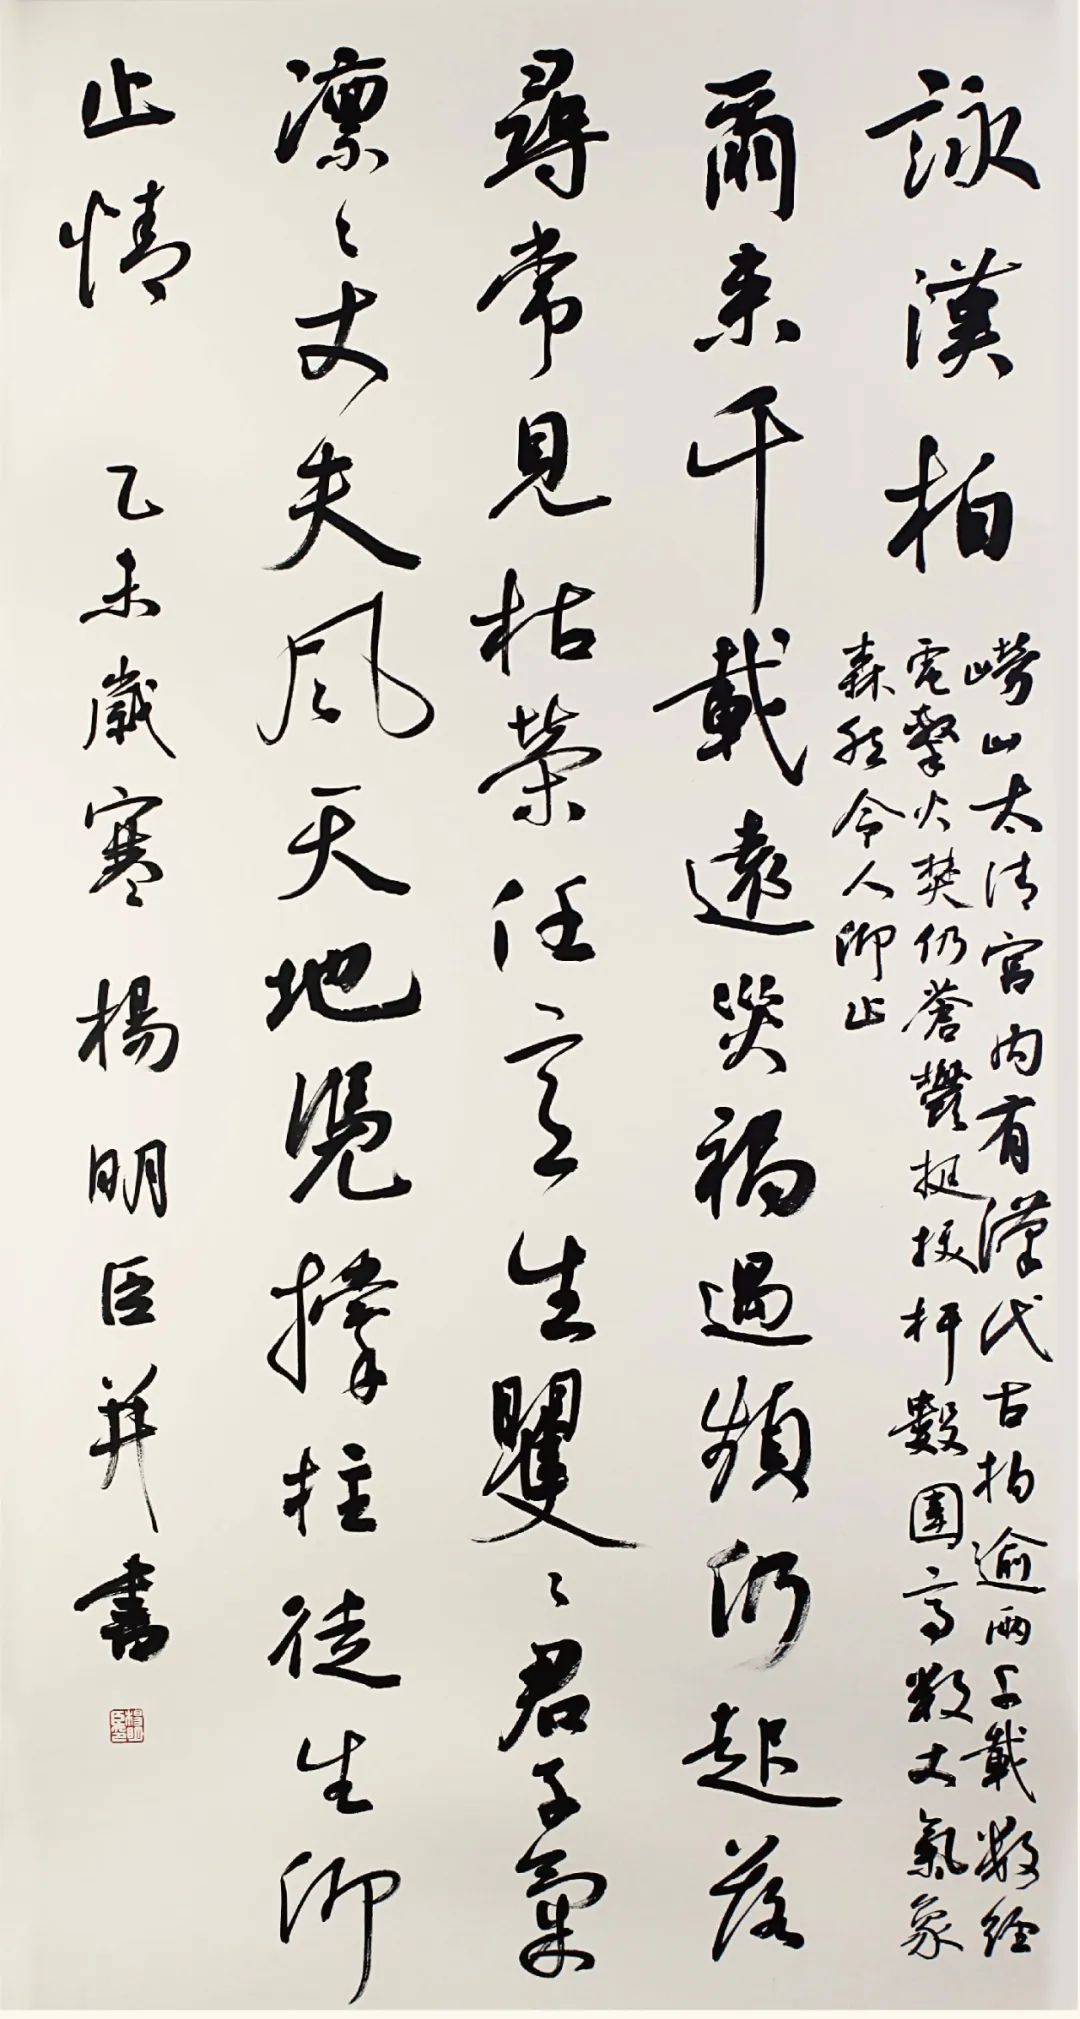 詠漢柏
嶗山太清宮內有漢代古柏逾兩千載數經
電擊火焚仍蒼鬱挺拔杆數圍高數丈氣象
森然令人仰止
爾來千載遠災禍遇頻仍起落
尋常見枯榮任意生矍〻君子氣
凛〻丈夫風天地凴撐柱徒生仰
止情 乙未歲寒楊明臣并書